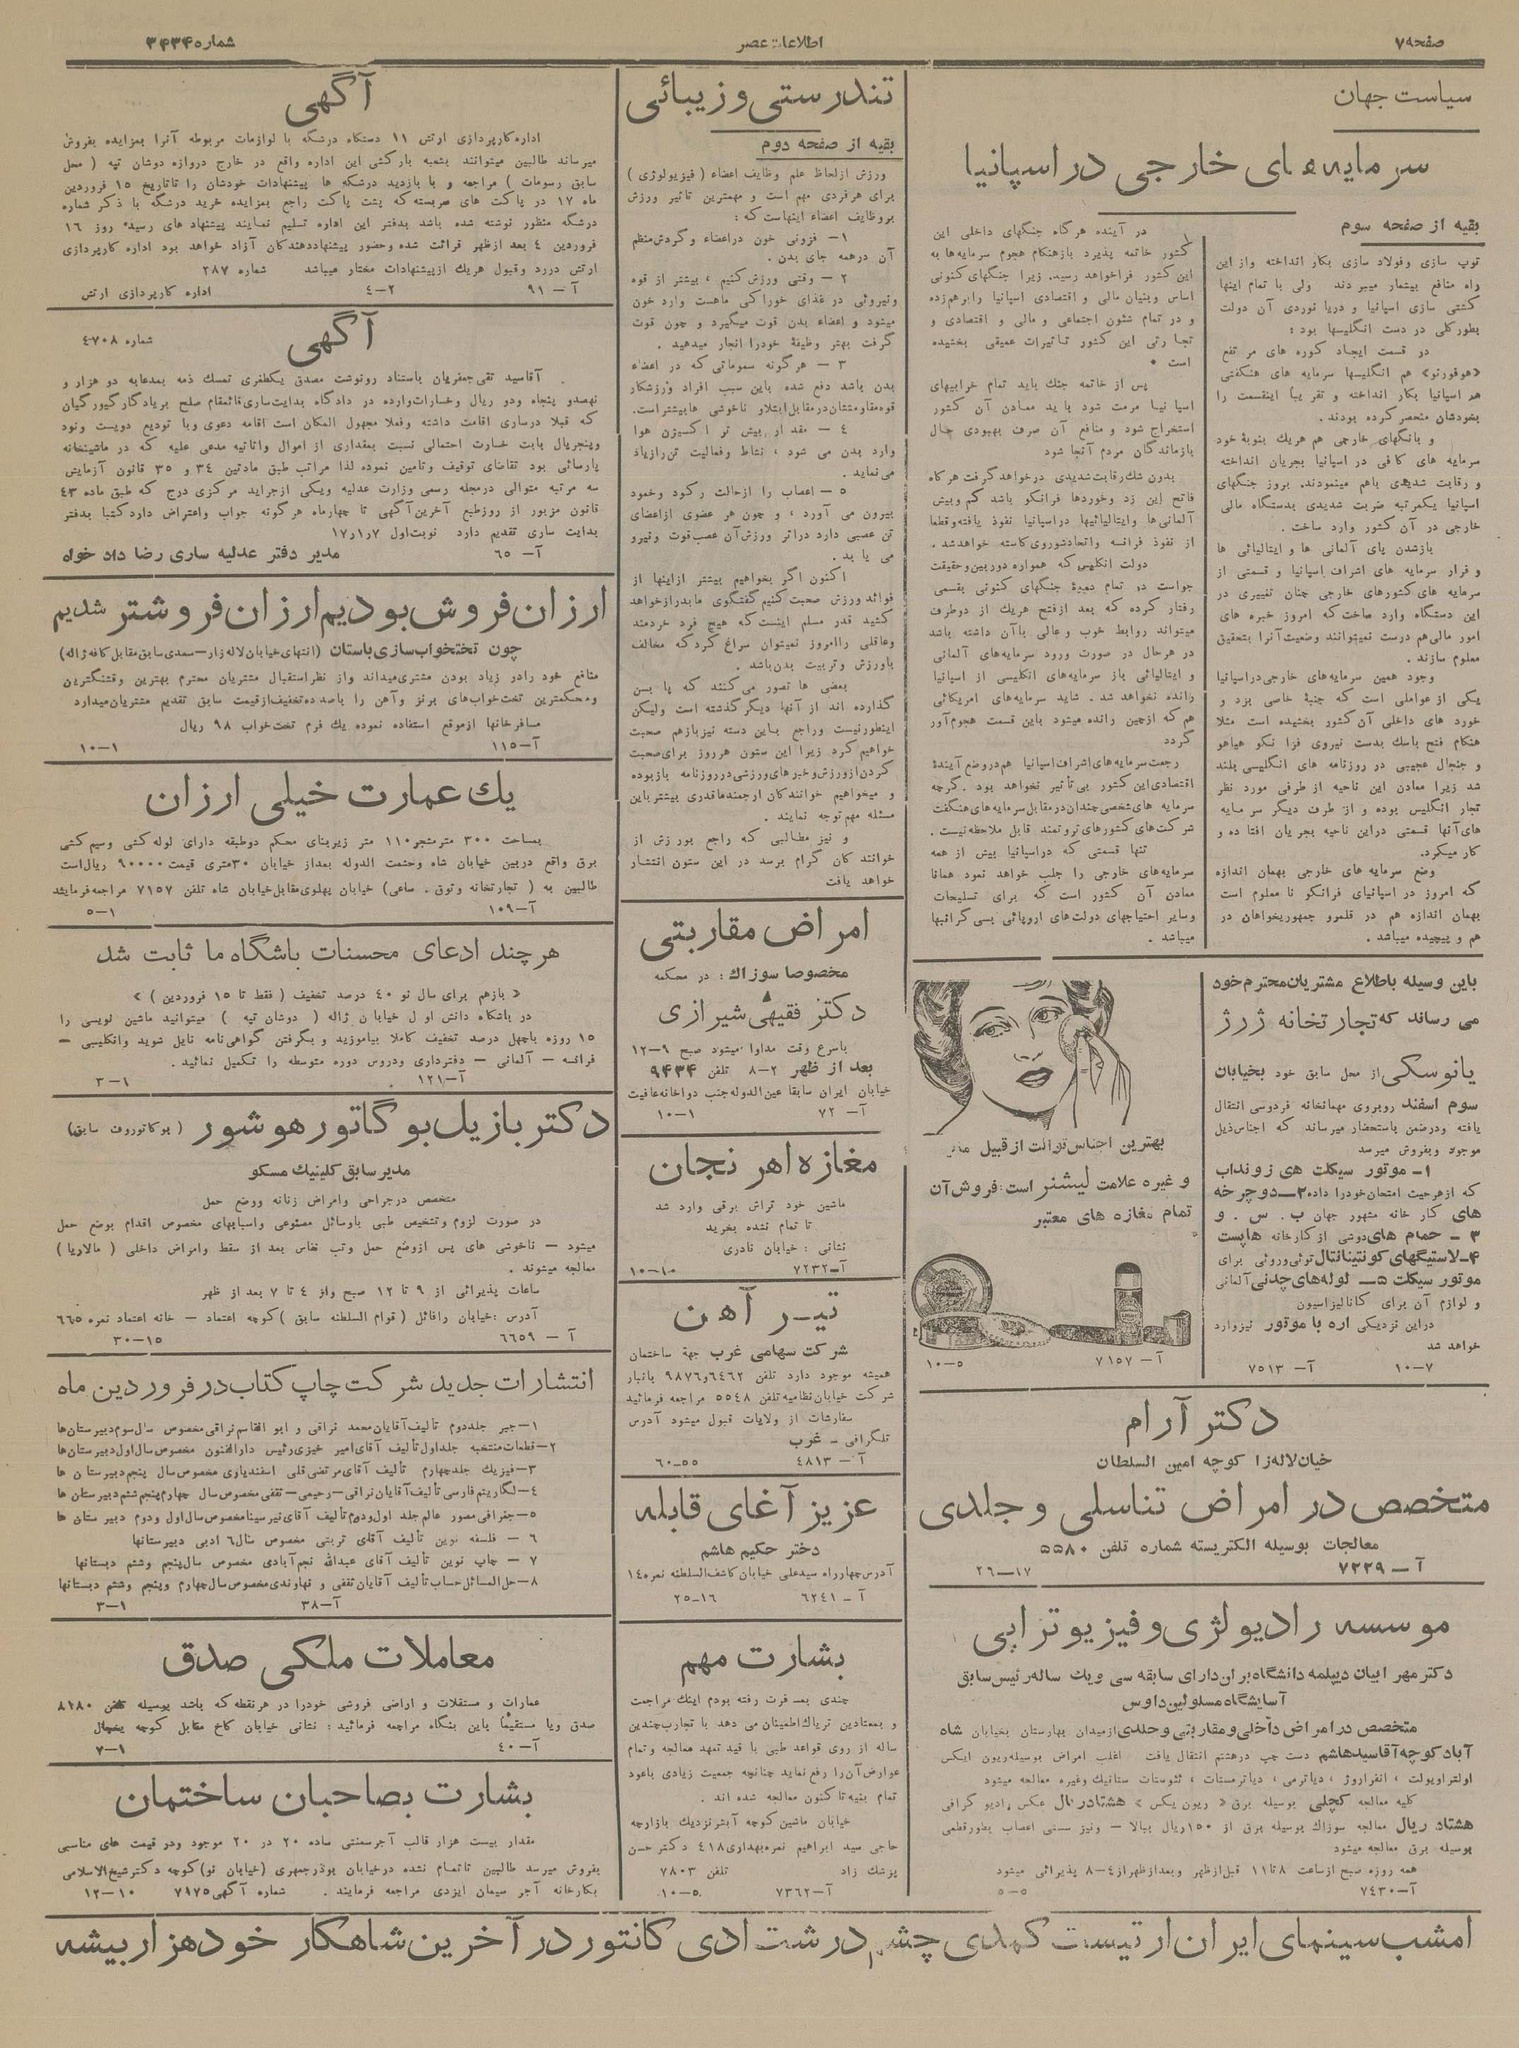 صفحه ۷۹
اطلاعات عصر
شماره ۳۴۳۴
سیاست جهان
سرمایه های خارجی در اسپانیا
بقیه از صفحه سوم
توپ سازی وفولاد سازی بکار انداخته واز این
راه منافع بیشمار میبردند ولی با تمام اینها
کشتی سازی اسپانیا و دریا نوردی آن دولت
بطور کلی در دست انگلیسها بود :
در قسمت ایجاد کوره های مرتفع
«هوفورنو» هم انگلیسها سرمایه های هنگفتی
در اسپانیا بکار انداخته و تقریباً اینقسمت را
بخودشان منحصر کرده بودند.
و بانکهای خارجی هم هریك بنوبهٔ خود
سرمایه های کافی در اسپانیا بجریان انداخته
و رقابت شدیدی باهم مینمودند. بروز جنگهای
اسپانیا یکمرتبه ضربت شدیدی بدستگاه مالی
خارجی در آن کشور وارد ساخت .
بازشدن پای آلمانی ها و ایتالیائی ها
و فرار سرمایه های اشراف اسپانیا و قسمتی از
سرمایه های کشورهای خارجی چنان تغییری در
این دستگاه وارد ساخت که امروز خبره های
امور مالی هم درست نمیتوانند وضعیت آنرا بتحقیق
معلوم سازند .
وجود همین سرمایه های خارجی در اسپانیا
یکی از عواملی است که جنبهٔ خاصی بزد و
خورد های داخلی آن کشور بخشیده است مثلا
هنگام فتح باسك بدست نیروی فرانکو هیاهو
و جنجال عجیبی در روزنامه های انگلیسی بلند
شد زیرا معادن این ناحیه از طرفی مورد نظر
تجار انگلیس بوده و از طرف دیگر سرمایه
های آنها قسمتی دراین ناحیه بجریان افتاده و
کار میکرد.
وضع سرمایه های خارجی بهمان اندازه
که امروز در اسپانیای فرانکو نا معلوم است
بهمان اندازه هم در قلمرو جمهوریخواهان در
هم و پیچیده میباشد .
در آینده هرگاه جنگهای داخلی این
کشور خاتمه پذیرد بازهنگام هجوم سرمایه ها به
این کشور فراخواهد رسید. زیرا جنگهای کنونی
اساس وبنیان مالی و اقتصادی اسپانیا را برهم زده
و در تمام شئون اجتماعی و مالی و اقتصادی و
تجارتی این کشور تاثیرات عمیقی بخشیده
است .
پس از خاتمه جنك باید تمام خرابیهای
اسپانیا مرمت شود باید معادن آن کشور
استخراج شود و منافع آن صرف بهبودی حال
بازماندگان مردم آنجا شود
بدون شك رقابت شدیدی در خواهد گرفت هرگاه
فاتح این زد وخوردها فرانکو باشد کم وبیش
آلمانی ها وایتالیائیها در اسپانیا نفوذ یافته و قطعا
از نفوذ فرانسه و اتحاد شوروی کاسته خواهد شد .
دولت انگلیس که همواره دوربین و حقیقت
جواست در تمام دورهٔ جنگهای کنونی بقسمی
رفتار کرده که بعد از فتح هریك از دوطرف
میتواند روابط خوب و عالی با آن داشته باشد
در هرحال در صورت ورود سرمایه های آلمانی
و ایتالیائی باز سرمایه های انگلیسی از اسپانیا
رانده نخواهد شد . شاید سرمایه های امریکائی
هم که ازچین رانده میشود باین قسمت هجوم آور
گردد
رجعت سرمایه های اشراف اسپانیا هم در وضع آیندهٔ
اقتصادی این کشور بی تأثیر نخواهد بود . گرچه
سرمایه های شخصی چندان در مقابل سرمایه های هنگفت
شرکت های کشورهای ثروتمند قابل ملاحظه نیست .
تنها قسمتی که در اسپانیا بیش از همه
سرمایه های خارجی را جلب خواهد نمود همانا
معادن آن کشور است که برای تسلیحات
وسایر احتیاجهای دولت های اروپائی بسی گرانبها
میباشد .
باین وسیله باطلاع مشتریان محترم خود
می رساند که تجارتخانه ژرژ
یانوسکی از محل سابق خود بخیابان
سوم اسفند روبروی مهمانخانه فردوسی انتقال
یافته ودرضمن باستحضار میرساند که اجناس ذیل
موجود وبفروش میرسد
۱- موتور سیکلت های زونداب
که از هرحیث امتحان خودرا داده ۲- دوچرخه
های کار خانه مشهور جهان ب . س . و
۳ - حمام های دوشی از کارخانه هاپست
۴- لاستیگهای کونتیناتال توئی وروئی برای
موتور سیکلت ۵- لوله های چدنی آلمانی
و لوازم آن برای کانالیزاسیون
دراین نزدیکی اره با موتور نیزوارد
خواهد شد
۷-۱۰ آ- ۷۵۱۳
بهترین اجناس توالت از قبیل
و غیره علامت لیشنر است : فروش آن
تمام مغازه های معتبر
آ- ۷۱۵۷ ۵-۱۰
دکتر آرام
خیان لاله زا کوچه امین السلطان
متخصص در امراض تناسلی و جلدی
معالجات بوسیله الکتریسته شماره تلفن ۵۵۸۰
آ- ۷۲۲۹ ۱۷-۲۶
موسسه رادیولژی و فیزیوتراپی
دکتر مهر ابیان دیپلمه دانشگاه بران دارای سابقه سی ویك ساله رئیس سابق
آسایشگاه مسلولین داوس
متخصص در امراض داخلی و مقاربتی و جلدی از میدان بهارستان بخیابان شاه
آباد کوچه آقا سید هاشم دست چپ درهشتم انتقال یافت اغلب امراض بوسیله ریون ایکس
اولتراویولت ، انفراروژ ، دیاترمی ، دیاترمستات ، تئوستات ستاتیك وغیره معالجه میشود
کلیه معالجه کچلی بوسیله برق « ریون یکس » هشتاد ریال عکس رادیو گرافی
هشتاد ریال معالجه سوزاك بوسیله برق از ۱۵۰ ریال ببالا - ونیز سستی اعصاب بطورقطعی
بوسیله برق معالجه میشود
همه روزه صبح از ساعت ۸ تا ۱۱ قبل از ظهر وبعد از ظهر از ۴-۸ پذیرائی میشود
آ- ۷۴۳۰ ۵-۵
تندرستی و زیبائی
بقیه از صفحه دوم
ورزش از لحاظ علم وظایف اعضاء ( فیزیولوژی )
برای هر فردی مهم است و مهمترین تاثیر ورزش
بروظایف اعضاء اینهاست که :
۱- فزونی خون در اعضاء و گردش منظم
آن درهمه جای بدن .
۲ - وقتی ورزش کنیم ، بیشتر از قوه
ونیروئی در غذای خوراکی ماهست وارد خون
میشود و اعضاء بدن قوت میگیرد و چون قوت
گرفت بهتر وظیفهٔ خودرا انجار میدهد .
۳ - هرگونه سمومانی که در اعضاء
بدن باشد دفع شده باین سبب افراد ورزشکار
قوه مقاومتشان در مقابل ابتلاو ناخوشی ها بیشتر است.
۴ - مقدار بیش تر اکسیژن هوا
وارد بدن می شود ، نشاط وفعالیت تن رازیاد
می نماید .
۵ - اعصاب را ازحالت رکود وخمود
بیرون می آورد ، و چون هر عضوی از اعضای
تن عصبی دارد دراثر ورزش آن عصب قوت ونیرو
می یابد .
اکنون اگر بخواهیم بیشتر ازاینها از
فوائد ورزش صحبت کنیم گفتگوی ما بدرازا خواهد
کشید قدر مسلم اینست که هیچ فرد خردمند
وعاقلی را امروز نمیتوان سراغ کرد که مخالف
باورزش وتربیت بدن باشد .
بعضی ها تصور می کنند که پا بسن
گذارده اند از آنها دیگر گذشته است ولیکن
اینطور نیست وراجع باین دسته نیز بازهم صحبت
خواهیم کرد زیرا این ستون هر روز برای صحبت
کردن از ورزش و خبرهای ورزشی در روزنامه باز بوده
و میخواهیم خوانندگان ارجمند ما قدری بیشتر باین
مسئله مهم توجه نمایند .
و نیز مطالبی که راجع بورزش از
خوانندکان کرام برسد در این ستون انتشار
خواهد یافت
امراض مقاربتی
مخصوصا سوزاك : در محکمه
دکتر فقیهی شیرازی
باسرع وقت مداوا میشود صبح ۹-۱۲
بعد از ظهر ۲-۸ تلفن ۹۴۳۴
خیابان ایران سابقا عین الدوله جنب دواخانه عافیت
آ- ۷۲ ۱-۱۰
مغازه اهر نجان
ماشین خود تراش برقی وارد شد
تا تمام نشده بخرید
نشانی : خیابان نادری
آ- ۷۲۳۲ ۱۰-۱۰
تیـر آهن
شرکت سهامی غرب جهة ساختمان
همیشه موجود دارد تلفن ۶۴۶۲ و ۹۸۷۶ بانبار
شرکت خیابان نظامیه تلفن ۵۵۴۸ مراجعه فرمائید
سفارشات از ولایات قبول میشود آدرس
تلگرافی - غرب
آ- ۴۸۱۳ ۵۵-۶۰
عزیز آغای قابله
دختر حکیم هاشم
آدرس چهارراه سیدعلی خیابان کاشف السلطنه نمره ۱۴
آ- ۶۲۴۱ ۱۶-۲۵
بشارت مهم
چندی بمسافرت رفته بودم اینك مراجعت
و بمعتادین تریاك اطمینان می دهد با تجارب چندین
ساله از روی قواعد طبی با قید تعهد معالجه و تمام
عوارض آن را رفع نماید چنانچه جمعیت زیادی باعود
تمام بنیه تا کنون معالجه شده اند .
خیابان ماشین کوچه آبشر نزدیك بازارچه
حاجی سید ابراهیم نمره بهداری ۴۱۸ دکتر حسن
پزشك زاد تلفن ۷۸۰۳
آ- ۷۳۶۲ ۵-۱۰
آگهی
اداره کارپردازی ارتش ۱۱ دستگاه درشگه با لوازمات مربوطه آنرا بمزایده بفروش
میرساند طالبین میتوانند بشعبه بارکشی این اداره واقع در خارج دروازه دوشان تپه ( محل
سابق رسومات ) مراجعه و با بازدید درشکه ها پیشنهادات خودشان را تاتاریخ ۱۵ فروردین
ماه ۱۷ در پاکت های سربسته که پشت پاکت راجع بمزایده خرید درشگه با ذکر شماره
درشگه منظور نوشته شده باشد بدفتر این اداره تسلیم نمایند پیشنهاد های رسیده روز ۱۶
فروردین ۴ بعد ازظهر قرائت شده وحضور پیشنهاددهندگان آزاد خواهد بود اداره کارپردازی
ارتش دررد وقبول هریك ازپیشنهادات مختار میباشد شماره ۲۸۷
آ- ۹۱ ۲-۴ اداره کارپردازی ارتش
آگهی
شماره ۴۷۰۸
آقاسید تقی جعفریان باستناد رونوشت مصدق یکطغری تمسك ذمه بمدعابه دو هزار و
نهصدو پنجاه ودو ریال وخسارات وارده در دادگاه بدایت ساری قائممقام صلح بر یادگار گیورگیان
که قبلا درساری اقامت داشته وفعلا مجهول المکان است اقامه دعوی وبا تودیع دویست ونود
وپنجریال بابت خسارت احتمالی نسبت بمقداری از اموال واثاثیه مدعی علیه که در ماشینخانه
پارسائی بود تقاضای توقیف وتامین نموده لذا مراتب طبق مادتین ۳۴ و ۳۵ قانون آزمایش
سه مرتبه متوالی درمجله رسمی وزارت عدلیه ویکی ازجراید مرکزی درج که طبق ماده ۴۳
قانون مزبور از روزطبع آخرین آگهی تا چهارماه هرگونه جواب واعتراض دارد کتبا بدفتر
بدایت ساری تقدیم دارد نوبت اول ۱۷٫۱٫۷
آ- ۶۵ مدیر دفتر عدلیه ساری رضا داد خواه
ارزان فروش بودیم ارزان فروشتر شدیم
چون تختخواب سازی باستان (انتهای خیابان لاله زار - سعدی سابق مقابل کافه ژاله)
منافع خود رادر زیاد بودن مشتری میداند واز نظر استقبال مشتریان محترم بهترین وقشنگترین
ومحکمترین تخت خواب های برنز وآهن را باصدده تخفیف از قیمت سابق تقدیم مشتریان میدارد
مسافرخانها ازموقع استفاده نموده یك فرم تخت خواب ۹۸ ریال
آ- ۱۱۵ ۱-۱۰
یك عمارت خیلی ارزان
بمساحت ۳۰۰ مترمشجر ۱۱۰ متر زیربنای محکم دوطبقه دارای لوله کشی وسیم کشی
برق واقع دربین خیابان شاه وحشمت الدوله بعداز خیابان ۳۰متری قیمت ۹۰۰۰۰ ریال است
طالبین به ( تجارتخانه وثوق . ساعی) خیابان پهلوی مقابل خیابان شاه تلفن ۷۱۵۷ مراجعه فرمایند
آ- ۱۰۹ ۱-۵
هرچند ادعای محسنات باشگاه ما ثابت شد
« بازهم برای سال نو ۴۰ درصد تخفیف ( فقط تا ۱۵ فروردین ) »
در باشگاه دانش اول خیابان ژاله ( دوشان تپه ) میتوانید ماشین نویسی را
۱۵ روزه باچهل درصد تخفیف کاملا بیاموزید و بگرفتن گواهی نامه نایل شوید وانگلیسی -
فرانسه - آلمانی - دفترداری ودروس دوره متوسطه را تکمیل نمائید .
آ- ۱۲۱ ۱-۳
دکتر بازیل بوگاتور هوشور ( بوکاتوروف سابق)
مدیر سابق کلینیك مسکو
متخصص درجراحی وامراض زنانه ووضع حمل
در صورت لزوم وتشخیص طبی باوسائل مصنوعی واسبابهای مخصوص اقدام بوضع حمل
میشود - ناخوشی های پس ازوضع حمل وتب نفاس بعد از سقط وامراض داخلی ( مالاریا )
معالجه میشوند .
ساعات پذیرائی از ۹ تا ۱۲ صبح واز ۴ تا ۷ بعد از ظهر
آدرس :خیابان رافائل ( قوام السلطنه سابق )کوچه اعتماد - خانه اعتماد نمره ۶۶۵
آ- ۶۶۵۹ ۱۵-۳۰
انتشارات جدید شرکت چاپ کتاب در فروردین ماه
۱- جبر جلد دوم تألیف آقایان محمد نراقی و ابو القاسم نراقی مخصوص سال سوم دبیرستان ها
۲- قطعات منتخبه جلد اول تألیف آقای امیر خیزی رئیس دارالفنون مخصوص سال اول دبیرستان ها
۳- فیزیك جلد چهارم تألیف آقای مرتضی قلی اسفندیاری مخصوص سال پنجم دبیرستان ها
۴- لگاریتم فارسی تألیف آقایان نراقی - رحیمی - تقفی مخصوص سال چهارم پنجم ششم دبیرستان ها
۵- جغرافی مصور عالم جلد اول ودوم تألیف آقای میرسینا مخصوص سال اول ودوم دبیرستان ها
۶- فلسفه نوین تألیف آقای تربتی مخصوص سال ۶ ادبی دبیرستانها
۷ - چاپ نوین تألیف آقای عبدالله نجم آبادی مخصوص سال پنجم وششم دبستانها
۸- حل المسائل حساب تألیف آقایان ثقفی و نهاوندی مخصوص سال چهارم وپنجم وششم دبستانها
آ- ۳۸ ۱-۳
معاملات ملکی صدق
عمارات و مستغلات و اراضی فروشی خودرا در هر نقطه که باشد بوسیله تلفن ۸۱۸۰
صدق ویا مستقیما باین بنگاه مراجعه فرمائید : نشانی خیابان کاخ مقابل کوچه یخچال
آ- ۴۰ ۱-۷
بشارت بصاحبان ساختمان
مقدار بیست هزار قالب آجرسمنتی ساده ۲۰ در ۲۰ موجود ودر قیمت های مناسبی
بفروش میرسد طالبین تا تمام نشده درخیابان بوذرجمهری (خیابان نو) کوچه دکتر شیخ الاسلامی
بکارخانه آجر سیمان ایزدی مراجعه فرمایند . شماره آگهی ۷۹۷۵ ۱۰-۱۲
امشب سینمای ایران ارتیست کمدی چشم درشت ادی کانتور در آخرین شاهکار خود هزار بیشه